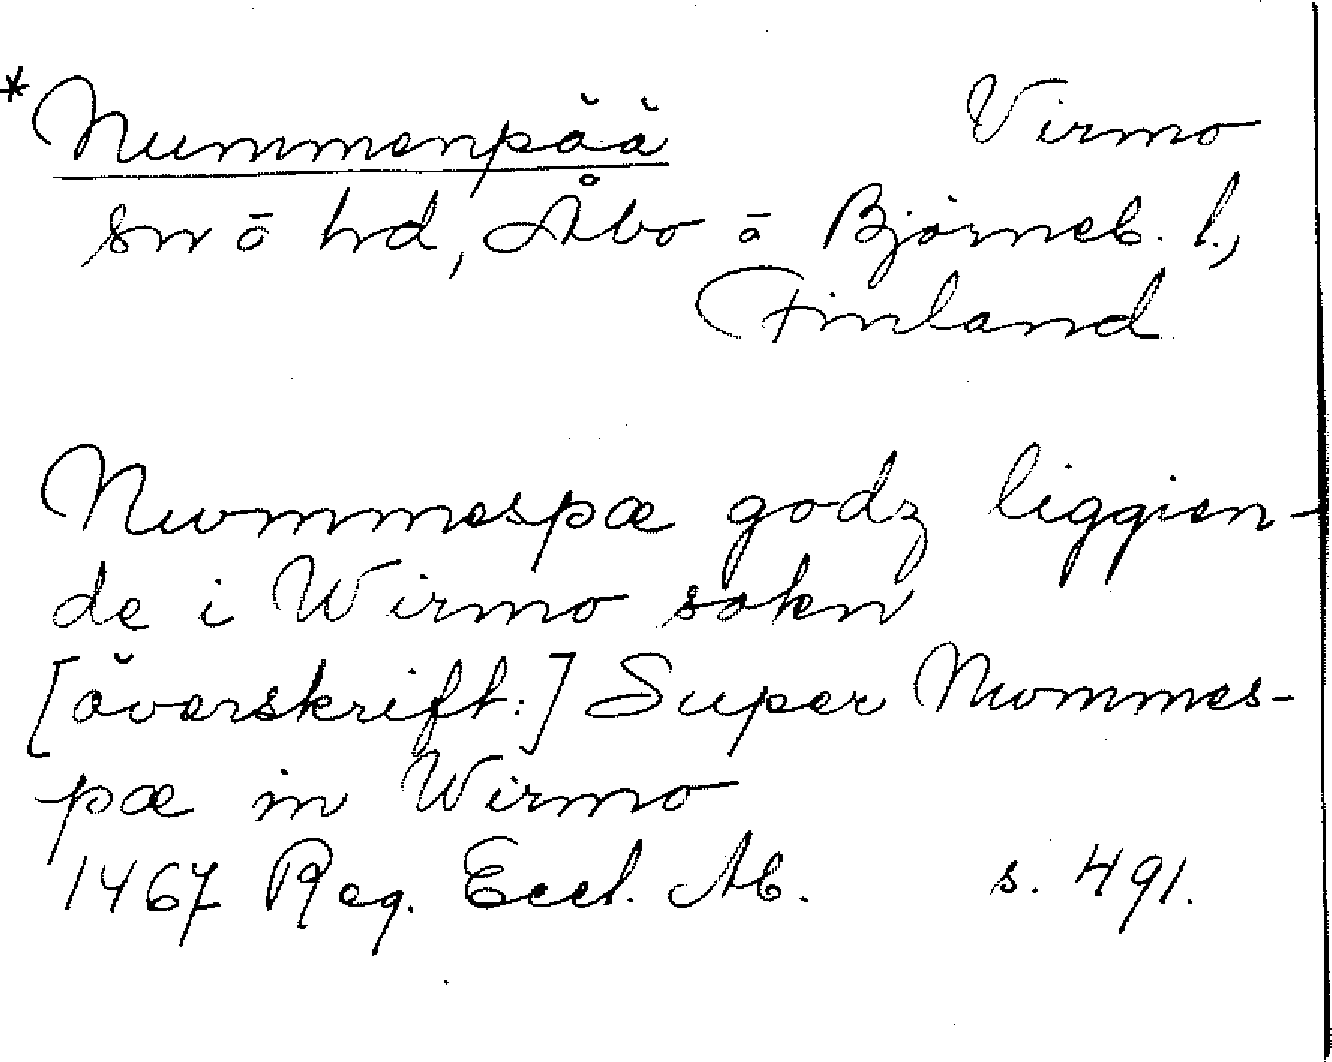 *Nummenpää Virmo
sn o hd, Åbo o Björneb. l.,
Finland
Nwmmespæ godz liggien-
de i Wirmo sokn
[överskrift:] Super Nwmmes-
pæ in Wirmo
1467 Reg. Eccl. Ab. s. 491.